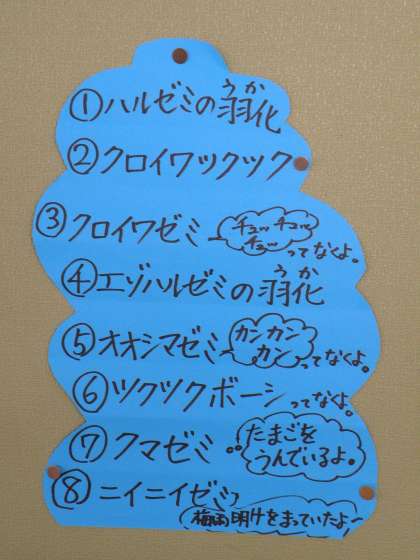 ①ハルゼミの羽化
うか
②クロイワツクツク
③クロイワゼミ チュッチュッチュッってなくよ。
④エゾハルゼミの羽化
うか
⑤オオシマゼミ カンカンカンってなくよ。
⑥ツクツクボーシってなくよ。
⑦クマゼミ たまごをうんでいるよ。
⑧ニイニイゼミ 梅雨明けをまっていたよ